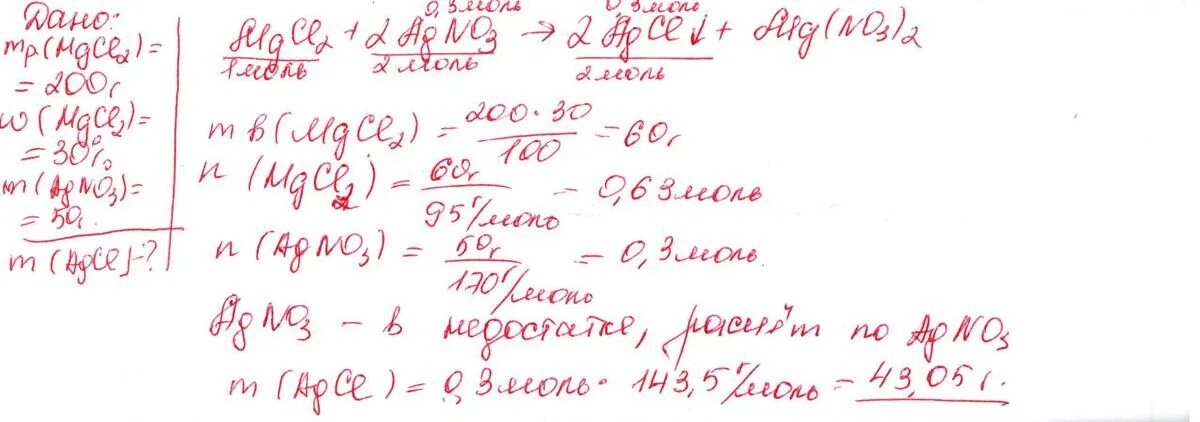 Дано:
mр(MgCl₂)=
=200г
w(MgCl₂)=
=30%
m(AgNO₃)=
=50г.
m(AgCl)-?
0,3моль 0,3моль
MgCl₂ + 2AgNO₃ → 2AgCl↓ + Mg(NO₃)₂
1моль 2моль 2моль
m в(MgCl₂) = 200·30/100 = 60г
n(MgCl₂) = 60г/95г/моль = 0,63моль
n(AgNO₃) = 50г/170г/моль = 0,3моль.
AgNO₃ – в недостатке, расчёт по AgNO₃
m(AgCl) = 0,3моль · 143,5г/моль = 43,05г.